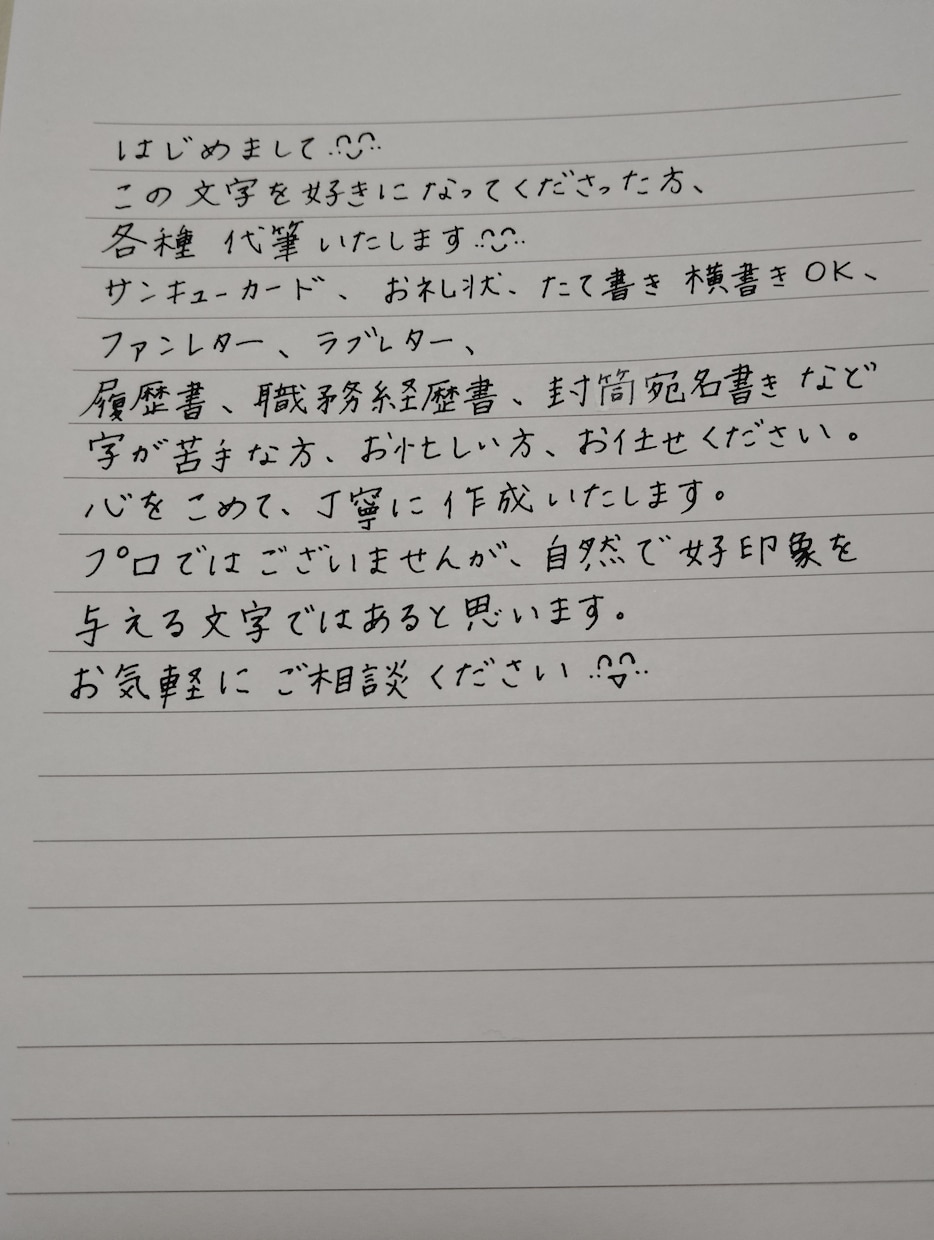 はじめまして
この文字を好きになってくださった方、
各種 代筆いたします
サンキューカード、お礼状、たて書き 横書きOK、
ファンレター、ラブレター、
履歴書、職務経歴書、封筒宛名書き など
字が苦手な方、お忙しい方、お任せください。
心をこめて、丁寧に作成いたします。
プロではございませんが、自然で好印象を
与える文字ではあると思います。
お気軽にご相談ください